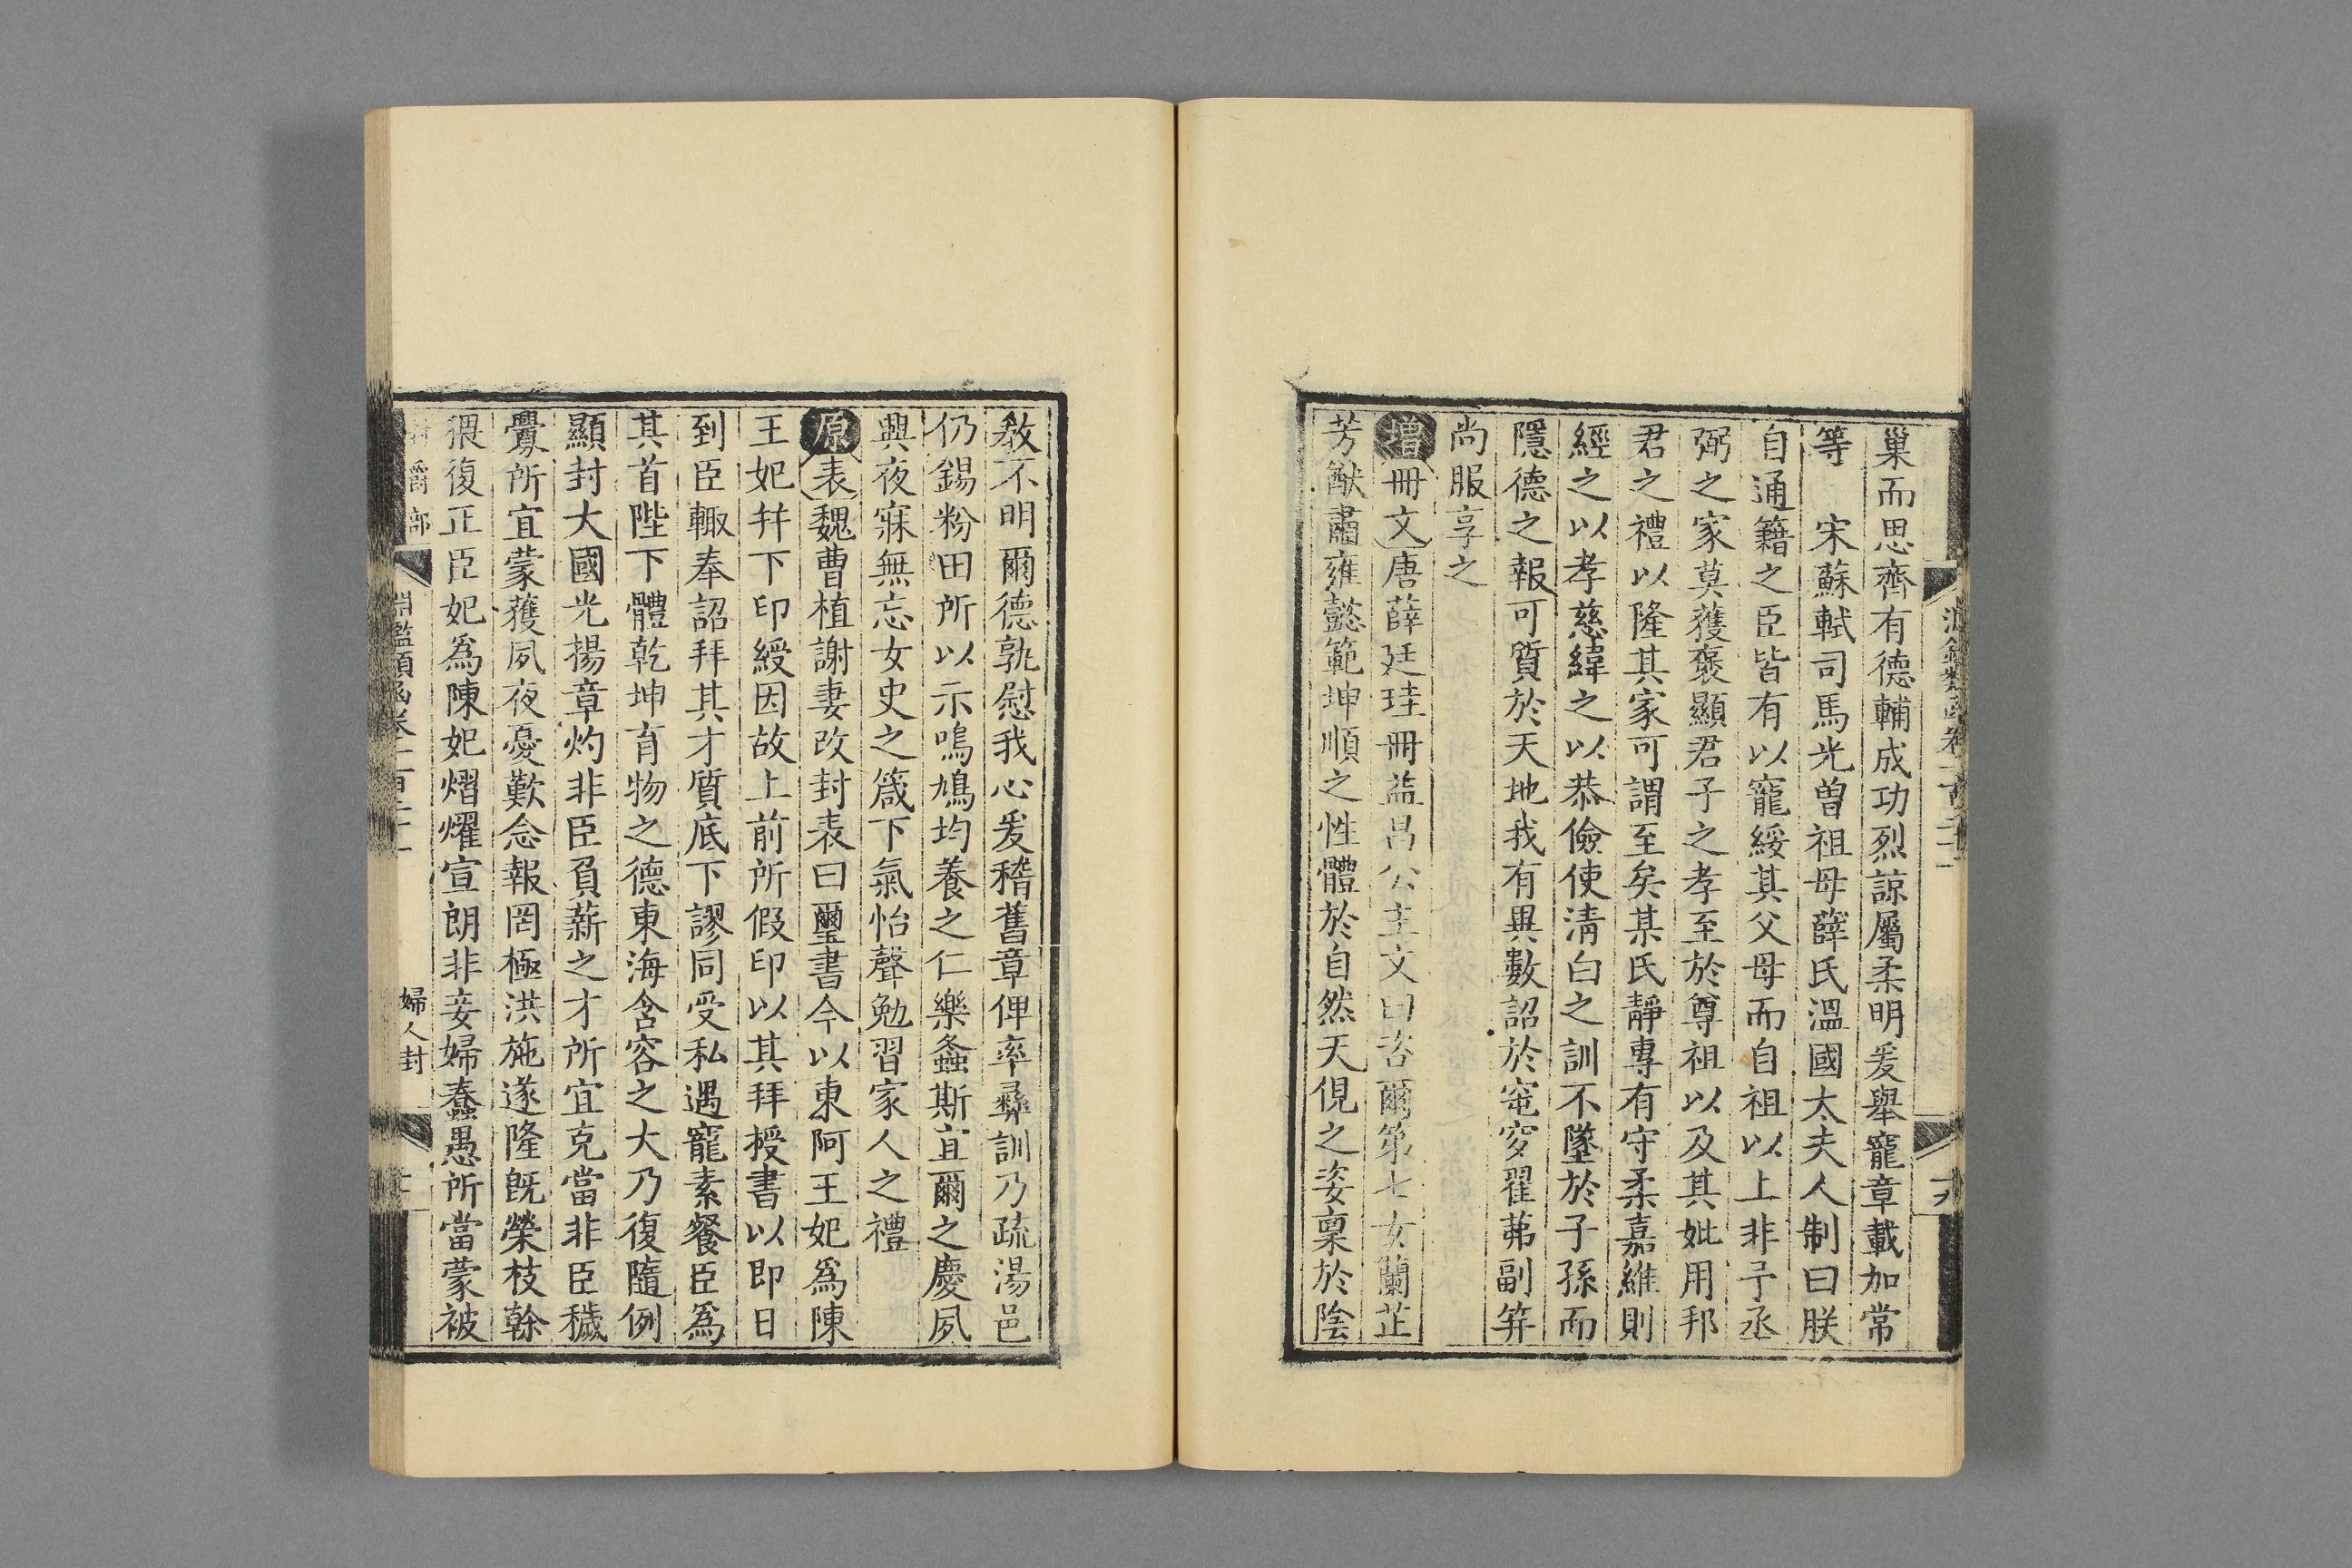 巢而思齊有德輔成功烈諒屬柔明爰舉寵章載加常
等　宋蘇軾司馬光曽祖母薛氏溫國太夫人制曰朕
自通籍之臣皆有以寵綏其父母而自祖以上非予丞
弼之家莫獲褒顯君子之孝至於尊祖以及其妣用邦
君之禮以隆其家可謂至矣某氏靜專有守柔嘉維則
經之以孝慈緯之以恭儉使淸白之訓不墜於子孫而
隱德之報可質於天地我有異數詔於窀穸翟茀副笄
尚服享之
增冊文唐薛廷珪冊益昌公主文曰咨爾第七女蘭芷
芳猷肅雍懿範坤順之性體於自然天俔之姿稟於陰
敎不明爾德孰慰我心爰稽舊章俾率彞訓乃疏湯邑
仍錫粉田所以示鳴鳩均養之仁樂螽斯宜爾之慶夙
興夜寐無忘女史之箴下氣怡聲勉習家人之禮
原表魏曹植謝妻改封表曰璽書今以東阿王妃爲陳
王妃幷下印綬因故上前所假印以其拜授書以即日
到臣輙奉詔拜其才質底下謬同受私遇寵素餐臣爲
其首陛下體乾坤育物之德東海含容之大乃復隨例
顯封大國光揚章灼非臣負薪之才所宜克當非臣穢
釁所宜蒙獲夙夜憂歎念報罔極洪施遂隆旣榮枝榦
猥復正臣妃爲陳妃熠燿宣朗非妾婦惷愚所當蒙被
婦人封